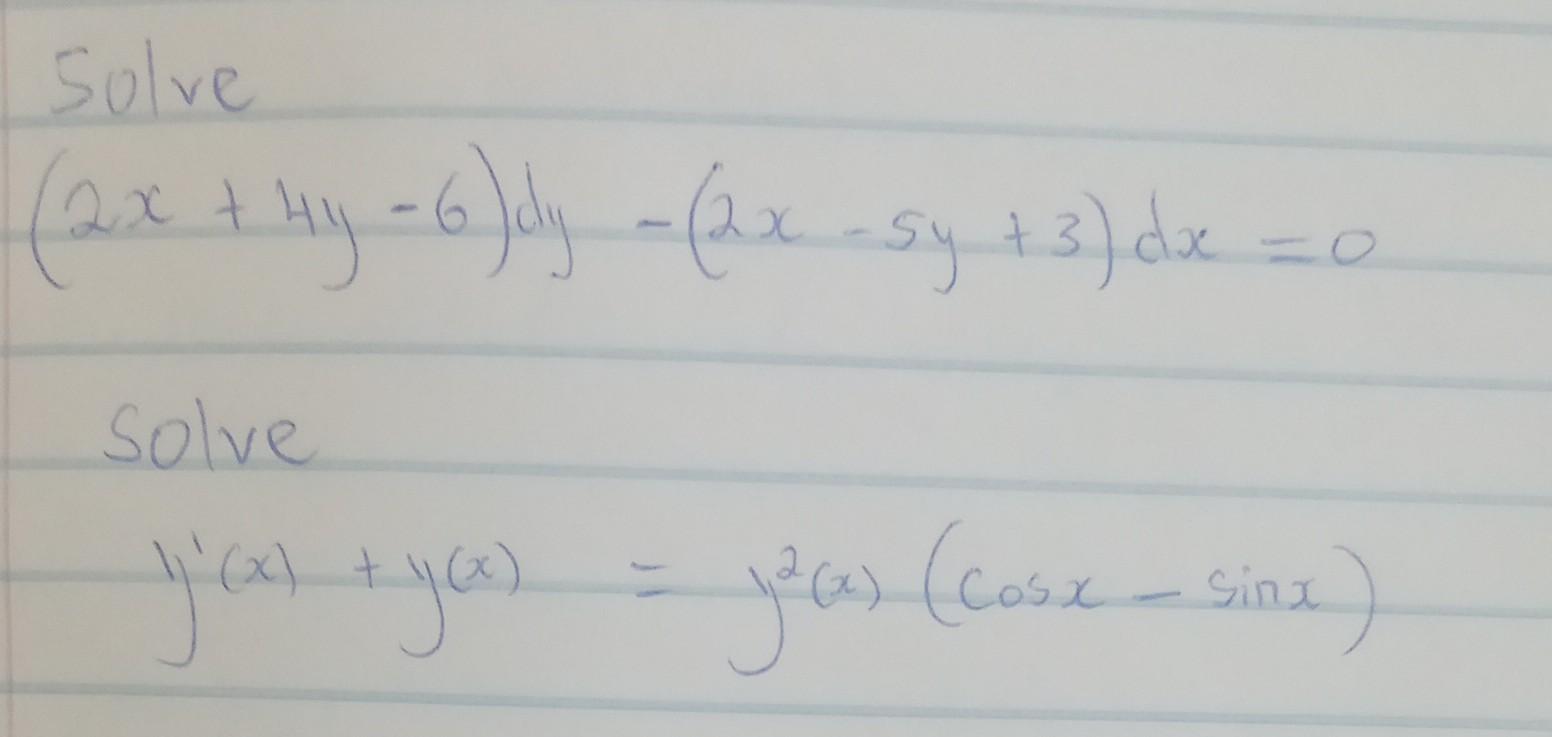 Solve
(2x + 4y - 6)dy - (2x - 5y + 3)dx = 0
Solve
y'(x) + y(x) = y²(x) (cosx - sinx)